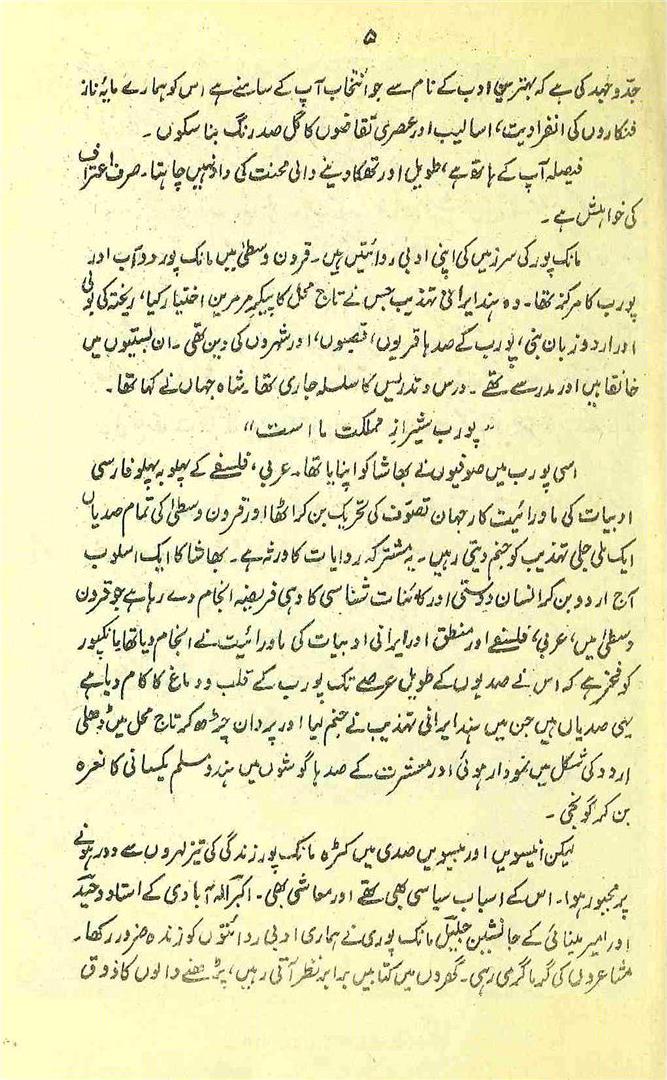 ۵
جدّوجہد کی ہے کہ بہتر سچا ادب کے نام سے جو انتخاب آپ کے سامنے ہے اس کو ہمارے مایۂ ناز
فنکاروں کی انفرادیت، اسالیب اور عصری تقاضوں کا گل صد رنگ بنا سکوں۔
فیصلہ آپ کے ہاتھ ہے، طویل اور تھکا دینے والی محنت کی داد نہیں چاہتا۔ صرف اعتراف
کی خواہش ہے۔
مانک پور کی سرزمین کی اپنی ادبی روائتیں ہیں۔ قرون وسطیٰ میں مانک پور دوآب اور
پورب کا مرکز تھا۔ وہ ہند ایرانی تہذیب جس نے تاج محل کا پیکرِ مرمریں اختیار کیا، ریختہ کی بولی
اور اردو زبان بنی، پورب کے صدہا قریوں، قصبوں، اور شہروں کی دین تھی۔ ان بستیوں میں
خانقاہیں اور مدرسے تھے۔ درس و تدریس کا سلسلہ جاری تھا۔ شاہ جہاں نے کہا تھا۔
"پورب شیرازِ مملکت ما است"
اسی پورب میں صوفیوں نے بھاشا کو اپنایا تھا۔ عربی، فلسفے کے پہلو بہ پہلو فارسی
ادبیات کی ماورائیت کا رجہان تصوّف کی تحریک بن کر اٹھا اور قرون وسطیٰ کی تمام صدیاں
ایک ملی جلی تہذیب کو جنم دیتی رہیں۔ یہ مشترکہ روایات کا ورثہ ہے۔ بھاشا کا ایک اسلوب
آج اردو بن کر انسان دوستی اور کائنات شناسی کا وہی فریضہ انجام دے رہا ہے جو قرون
وسطیٰ میں، عربی، فلسفے اور منطق اور ایرانی ادبیات کی ماورائیت نے انجام دیا تھا مانکپور
کو فخر ہے کہ اس نے صدیوں کے طویل عرصے تک پورب کے قلب و دماغ کا کام دیا ہے
یہی صدیاں ہیں جن میں ہند ایرانی تہذیب نے جنم لیا اور پروان چڑھ کر تاج محل میں ڈھلی
اردو کی شکل میں نمودار ہوئی اور معاشرت کے صدہا گوشوں میں ہندو مسلم یکسانی کا نعرہ
بن کر گونجی۔
لیکن انیسویں اور بیسویں صدی میں کٹرہ مانک پور زندگی کی تیز لہروں سے دور ہونے
پر مجبور ہوا۔ اس کے اسباب سیاسی بھی تھے اور معاشی بھی۔ اکبر الہ آبادی کے استاد وحید
اور امیر مینائی کے جانشین جلیل مانک پوری نے ہماری ادبی روائتوں کو زندہ ضرور رکھا۔
مشاعروں کی گرما گرمی رہی۔ گھروں میں کتابیں برابر نظر آتی رہیں، پڑھنے والوں کا ذوق